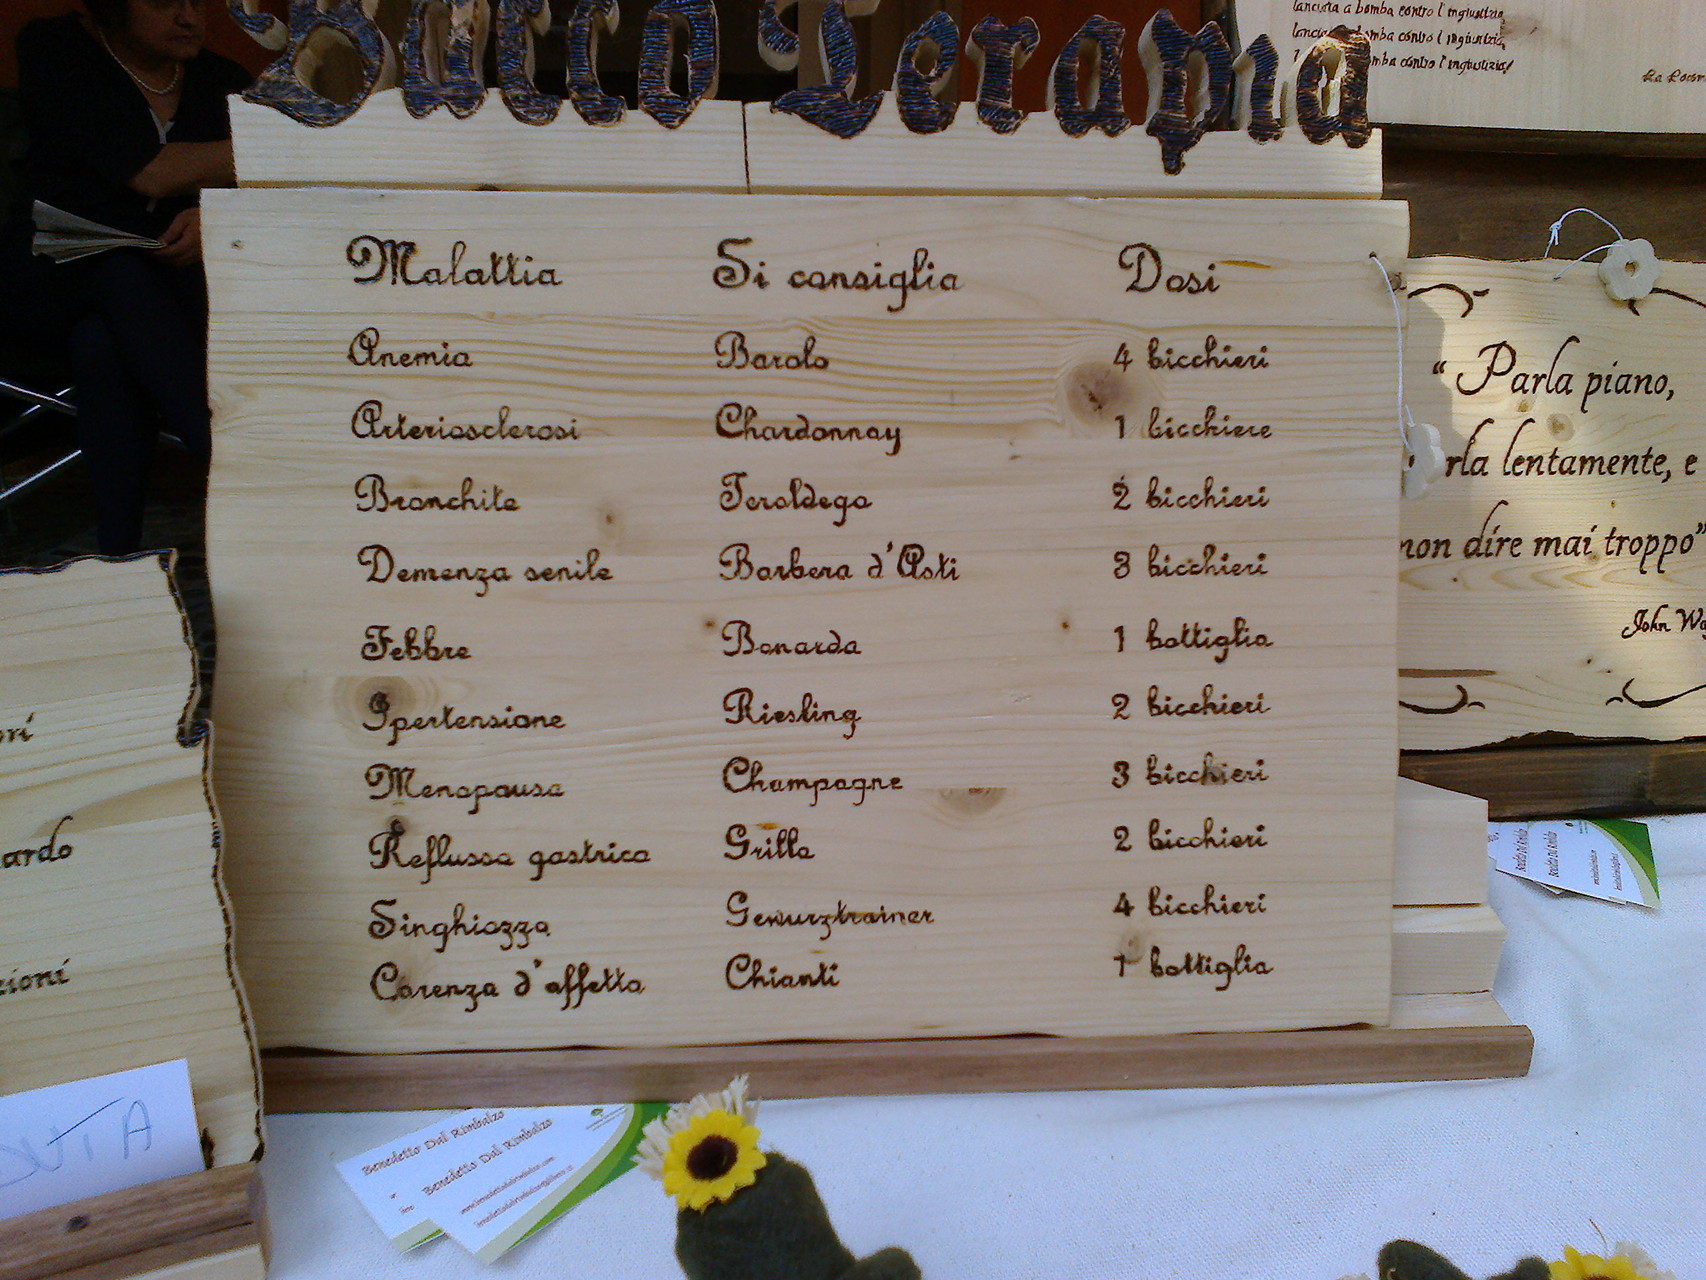 Bacco Terapia
lanciata a bomba contro l'ingiustizia,
bomba contro l'ingiustizia,
bomba contro l'ingiustizia!
La
Malattia Si consiglia Dosi
Anemia Barolo 4 bicchieri
Arteriosclerosi Chardonnay 1 bicchiere
Bronchite Teroldego 2 bicchieri
Demenza senile Barbera d'Asti 3 bicchieri
Febbre Bonarda 1 bottiglia
Ipertensione Riesling 2 bicchieri
Menopausa Champagne 3 bicchieri
Reflusso gastrico Grillo 2 bicchieri
Singhiozzo Gewurztrainer 4 bicchieri
Carenza d'affetto Chianti 1 bottiglia
"Parla piano,
rla lentamente, e
non dire mai troppo"
John Wa
ri
ardo
zioni
DUTA
Benedetto Dal Rimbalzo
Benedetto Dal Rimbalzo